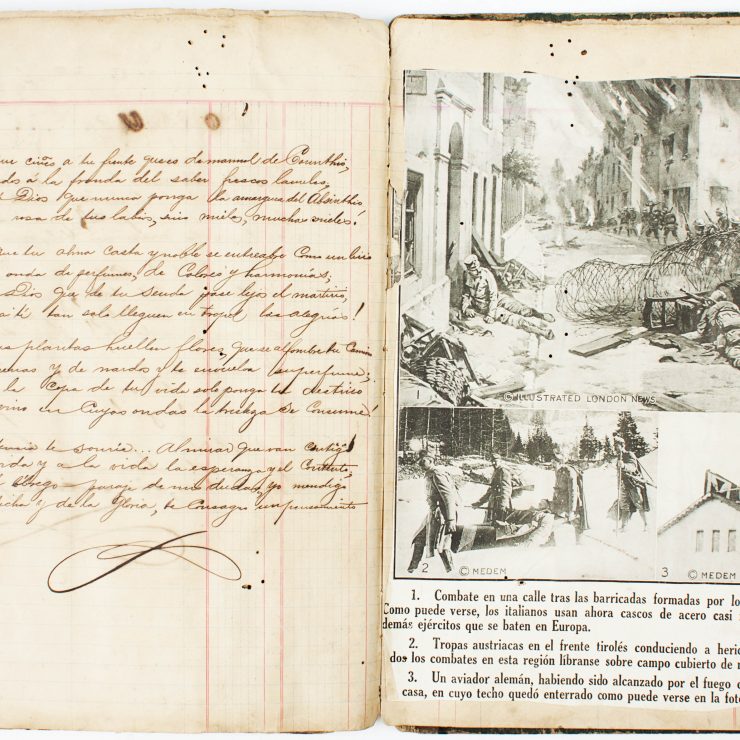 que ciñes a tu frente
a la fronda del saber frescos laureles,
Dios que nunca ponga la amargura del Absinthio
rosa de tus labios, sino miele, muchas mieles!
que tu alma casta y noble se entreabra como un lirio
onda de perfumes, de Colores y harmonías;
Dios que de tu senda pase lejos el martirio,
a ti tan solo lleguen en tropel las alegrías!
plantas huellen flores, que se alfombre tu Camino
y de nardos y te envuelva su perfume;
la Copa de tu vida solo ponga tu destino
vino en Cuyas ondas la tristeza se Consume!
te sonría... Al mirar que van Contigo
y a la vida la esperanza y el Contento,
ciego y yo mendigo
dicha y de la Gloria, te Consagro un pensamiento
1
© ILLUSTRATED LONDON NEWS
2 © MEDEM
3 © MEDEM
1. Combate en una calle tras las barricadas formadas por lo
Como puede verse, los italianos usan ahora cascos de acero casi
demás ejércitos que se baten en Europa.
2. Tropas austriacas en el frente tirolés conduciendo a heric
dos los combates en esta región líbranse sobre campo cubierto de
3. Un aviador alemán, habiendo sido alcanzado por el fuego
casa, en cuyo techo quedó enterrado como puede verse en la foto